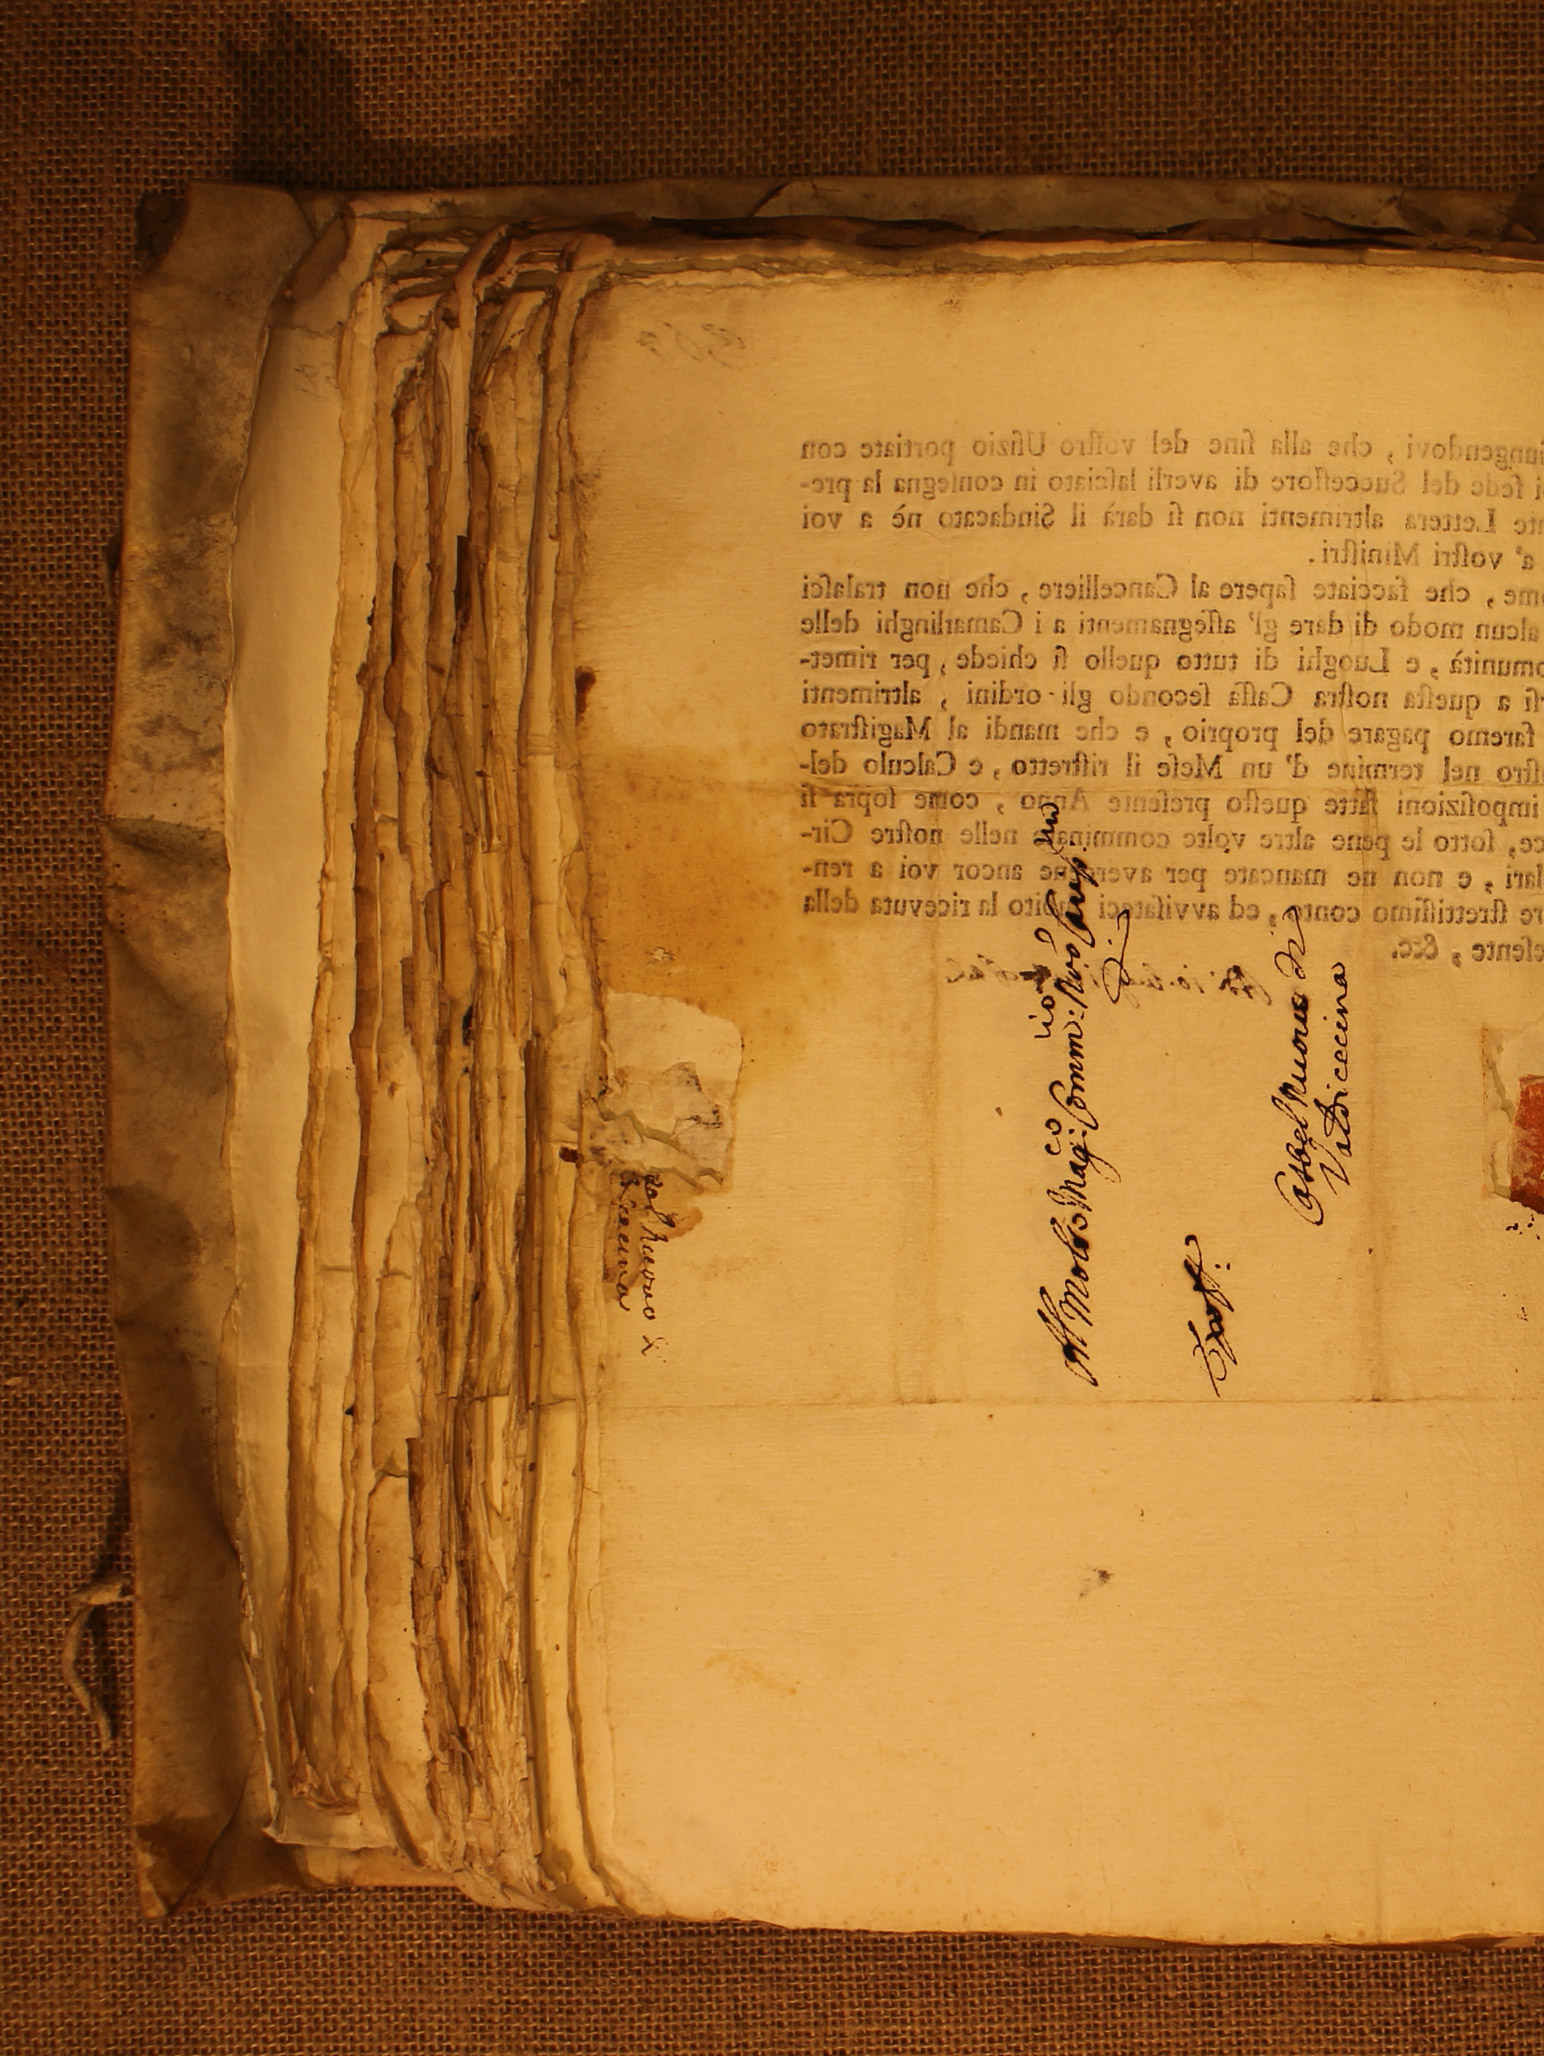 giungendovi , che alla fine del voſtro Ufizio portiate con
fede del Succeſſore di averli laſciato in conſegna la pre-
Lettera altrimenti non ſi darà il Sindacato nè a voi
a' voſtri Miniſtri .
, che facciate ſapere al Cancelliere , che non tralaſci
alcun modo di dare gl' aſſegnamenti a i Camarlinghi delle
omunità , e Luoghi di tutto quello ſi chiede , per rimet-
a queſta noſtra Caſſa ſecondo gli ordini , altrimenti
faremo pagare del proprio , e che mandi al Magiſtrato
noſtro nel termine d' un Meſe il riſtretto , e Calculo del-
impoſizioni fatte queſto preſente Anno , come ſopra ſi
ce, ſotto le pene altre volte comminate nelle noſtre Cir-
lari , e non ne mancate per averne ancor voi a ren-
ſtrettiſſimo conto , ed avviſateci ſubito la ricevuta della
eſente , &c.
Al Molto Mag:co Comm:rio
Castel Nuovo di
Val di cecina
Nuovo di
Cecina